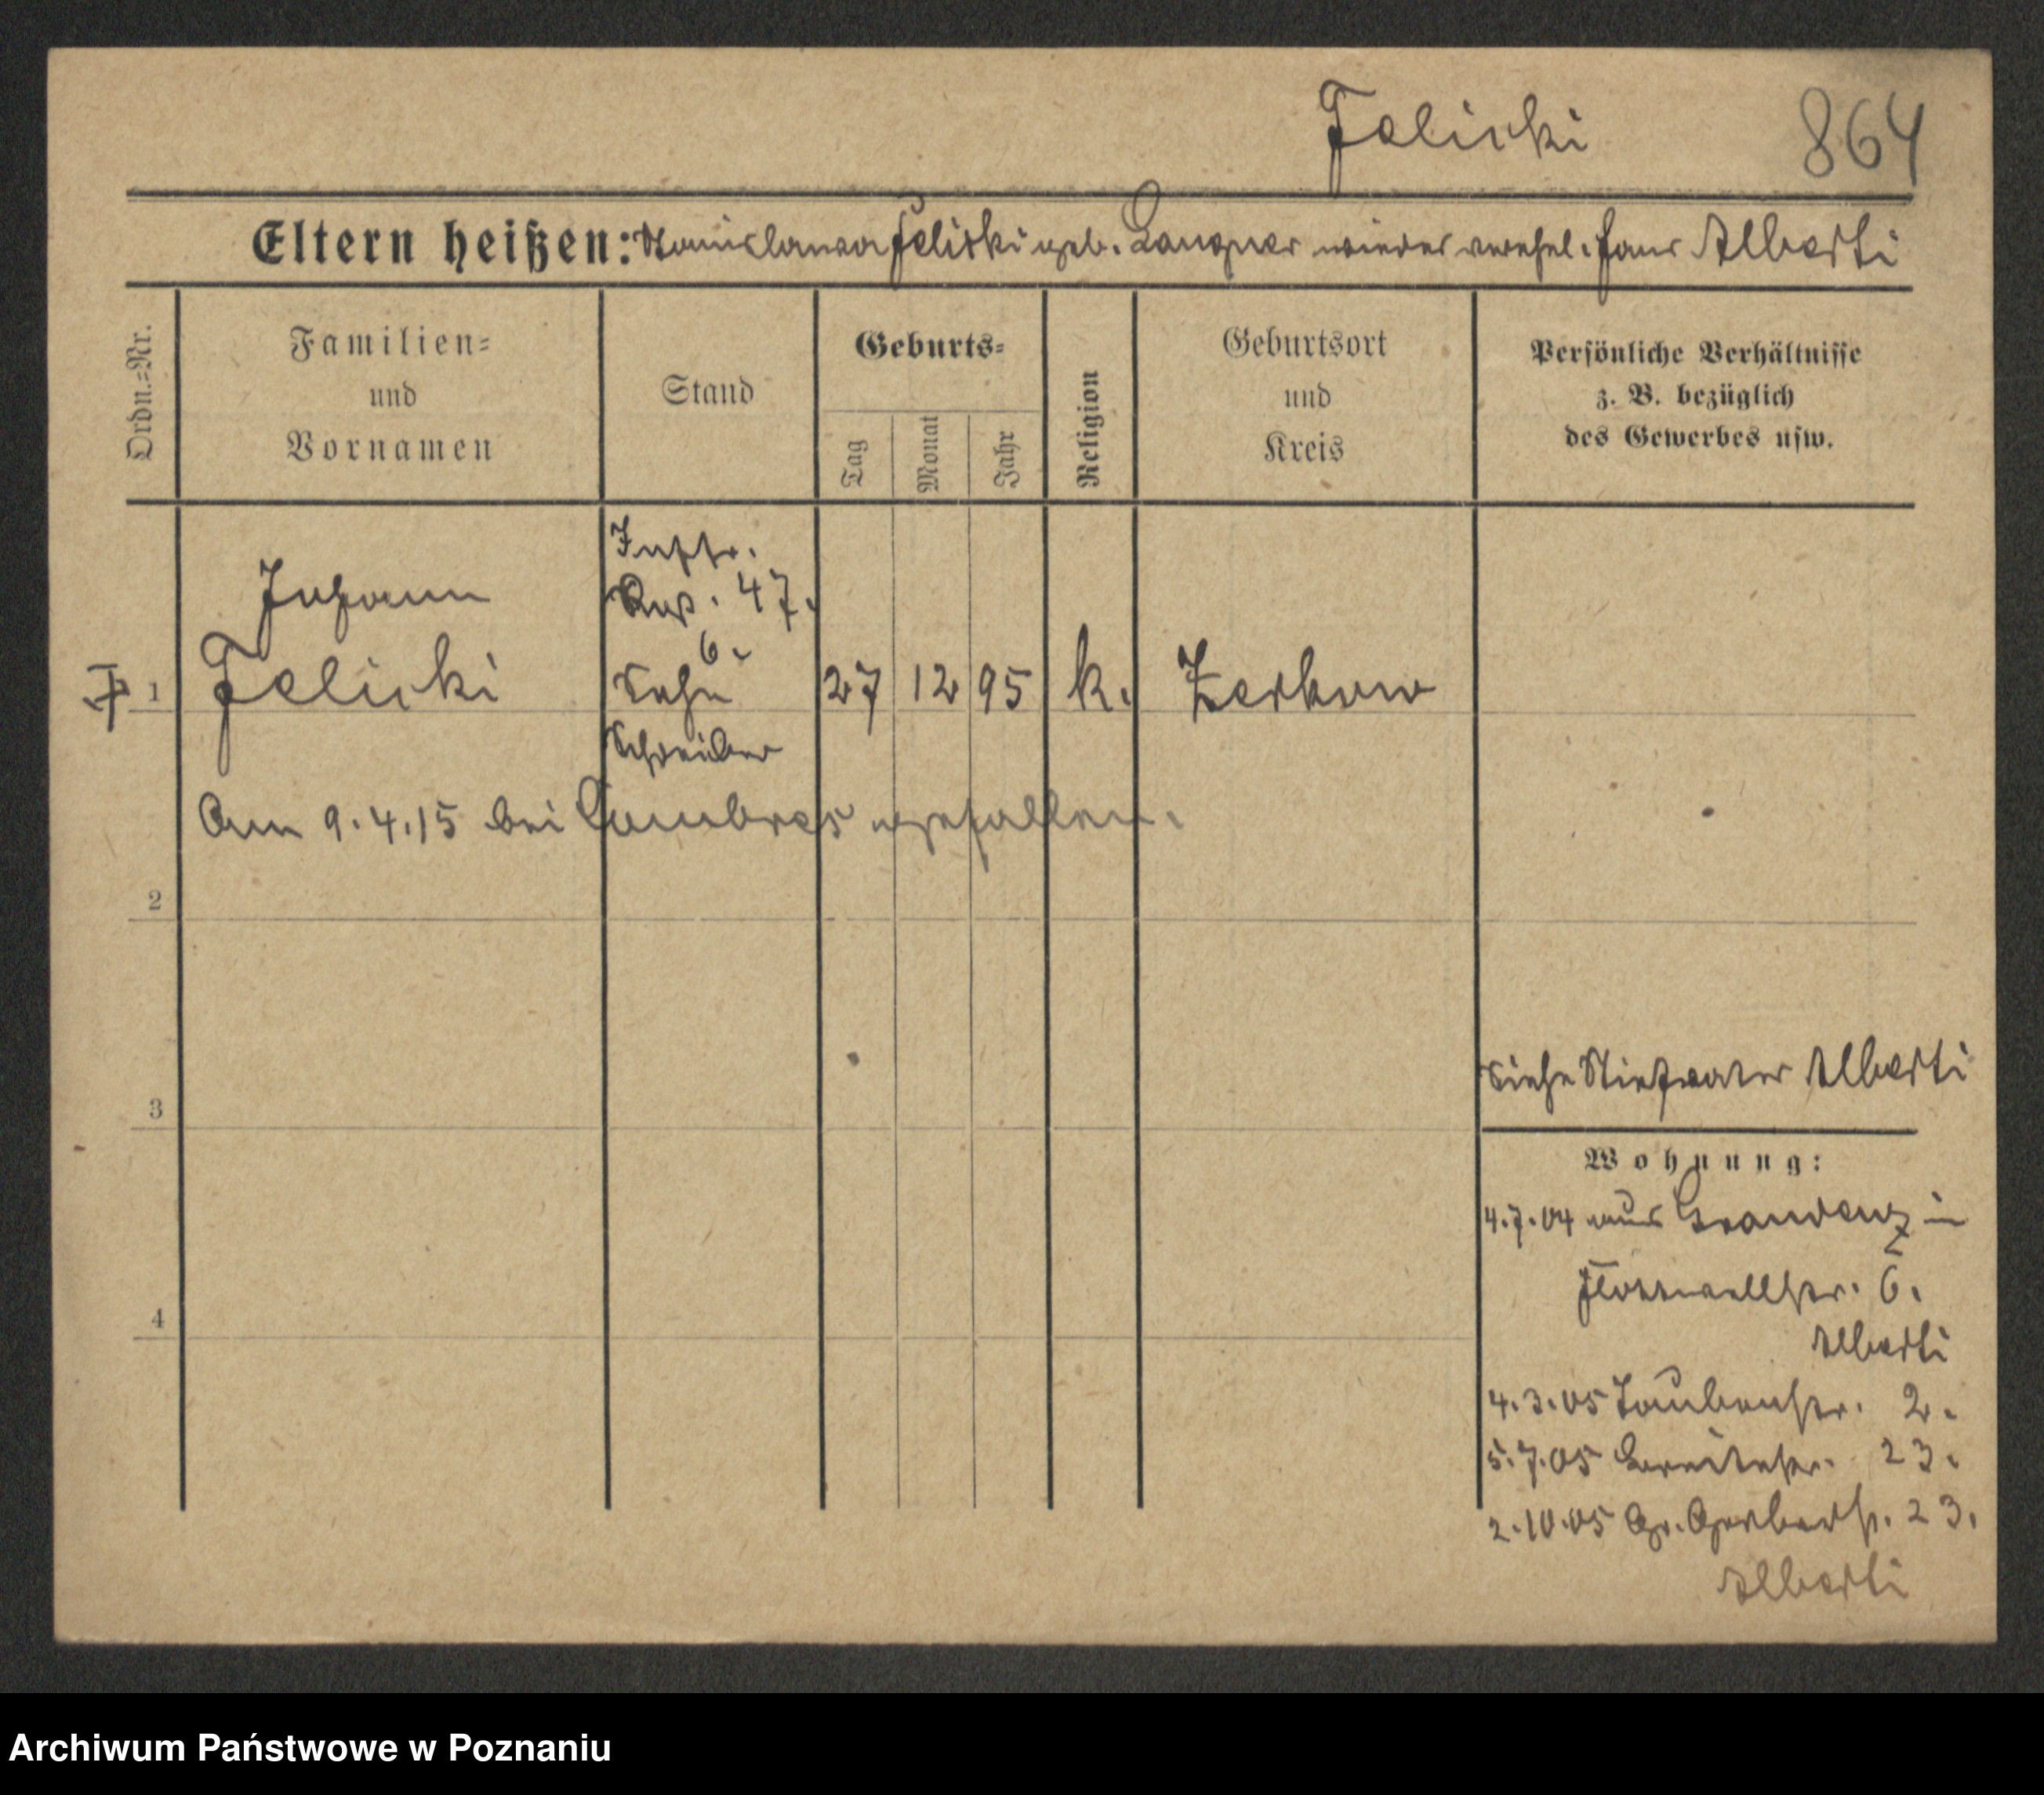 Felicki 864
Eltern heißen: Stanislawa Felicki geb. Langner wieder verehel. Alberti
Ordn.=Nr.
Familien=
und
Vornamen
Stand
Geburts=
Tag
Monat
Jahr
Religion
Geburtsort
und
Kreis
Persönliche Verhältnisse
z. B. bezüglich
des Gewerbes usw.
Inftr.
Johann
Reg. 47.
6.
1 Felicki Sohn 27 12 95 k. Zerkow
Schreiber
Am 9.4.15 bei Combres gefallen.
2
siehe Stiefvater Alberti
3
Wohnung:
4.7.04 aus Graudenz in
Flottwellstr. 6.
4
Alberti
4.3.05 Taubenstr. 2.
5.7.05 Breitestr. 23.
2.10.05 Gr. Gerberstr. 23.
Alberti
Archiwum Państwowe w Poznaniu